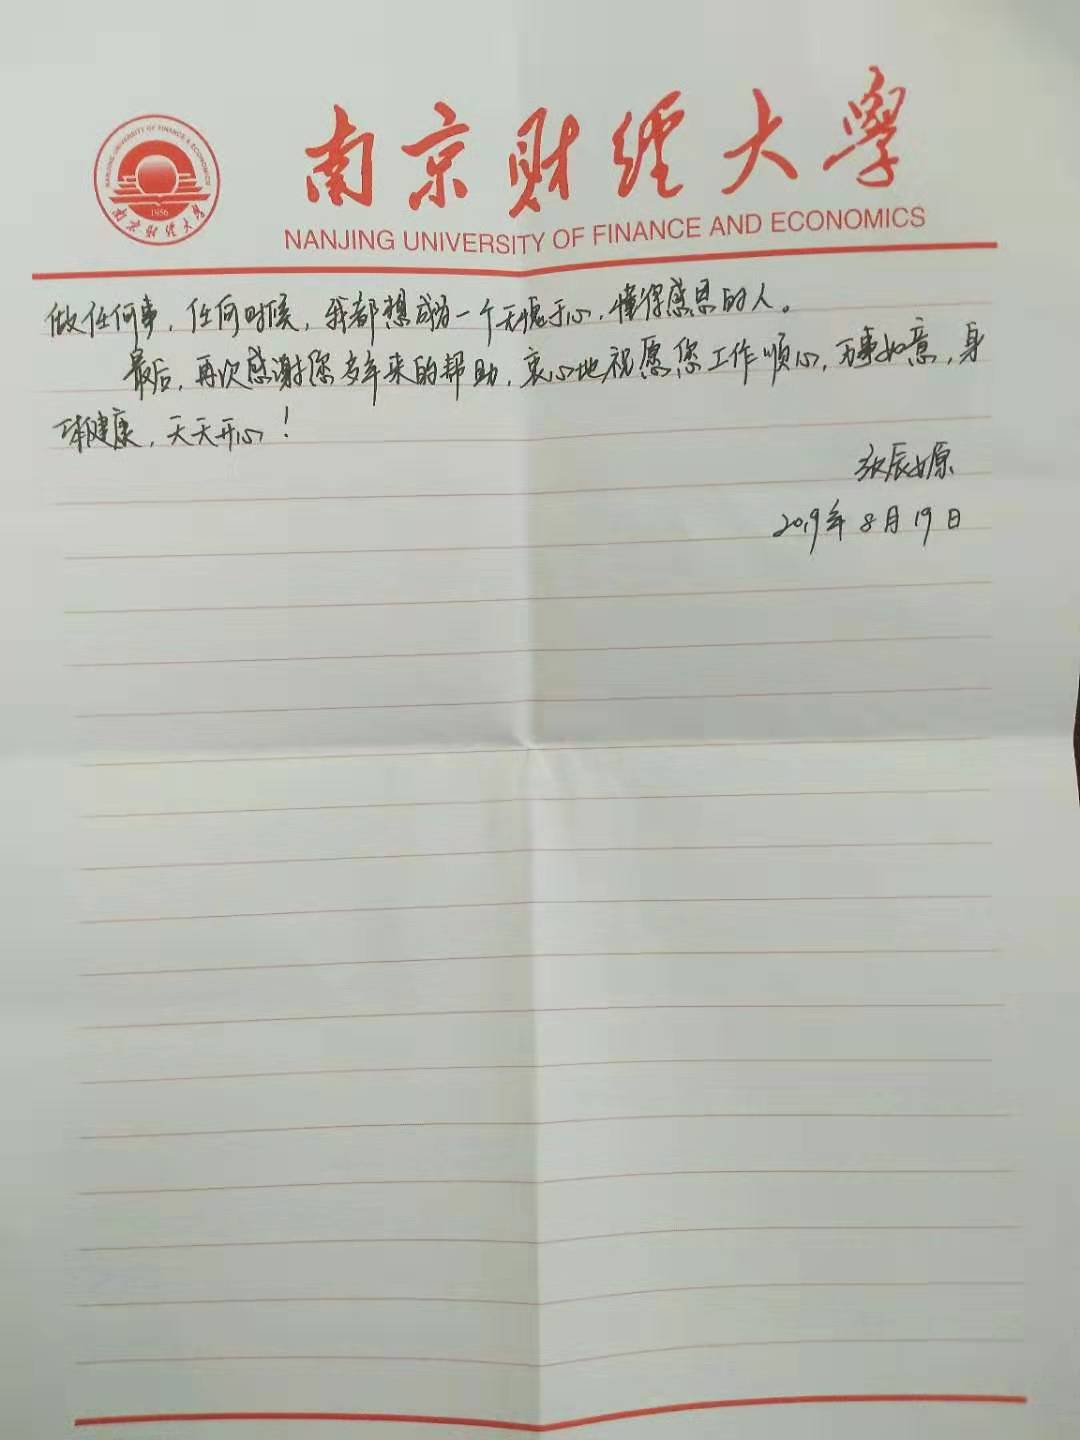 NANJING UNIVERSITY OF FINANCE & ECONOMICS
1956
南京财经大学
南京财经大学
NANJING UNIVERSITY OF FINANCE AND ECONOMICS
做任何事，任何时候，我都想成为一个无愧于心，懂得感恩的人。
最后，再次感谢您多年来的帮助，衷心地祝愿您工作顺心，万事如意，身
体健康，天天开心！
张辰嫄
2019年8月19日